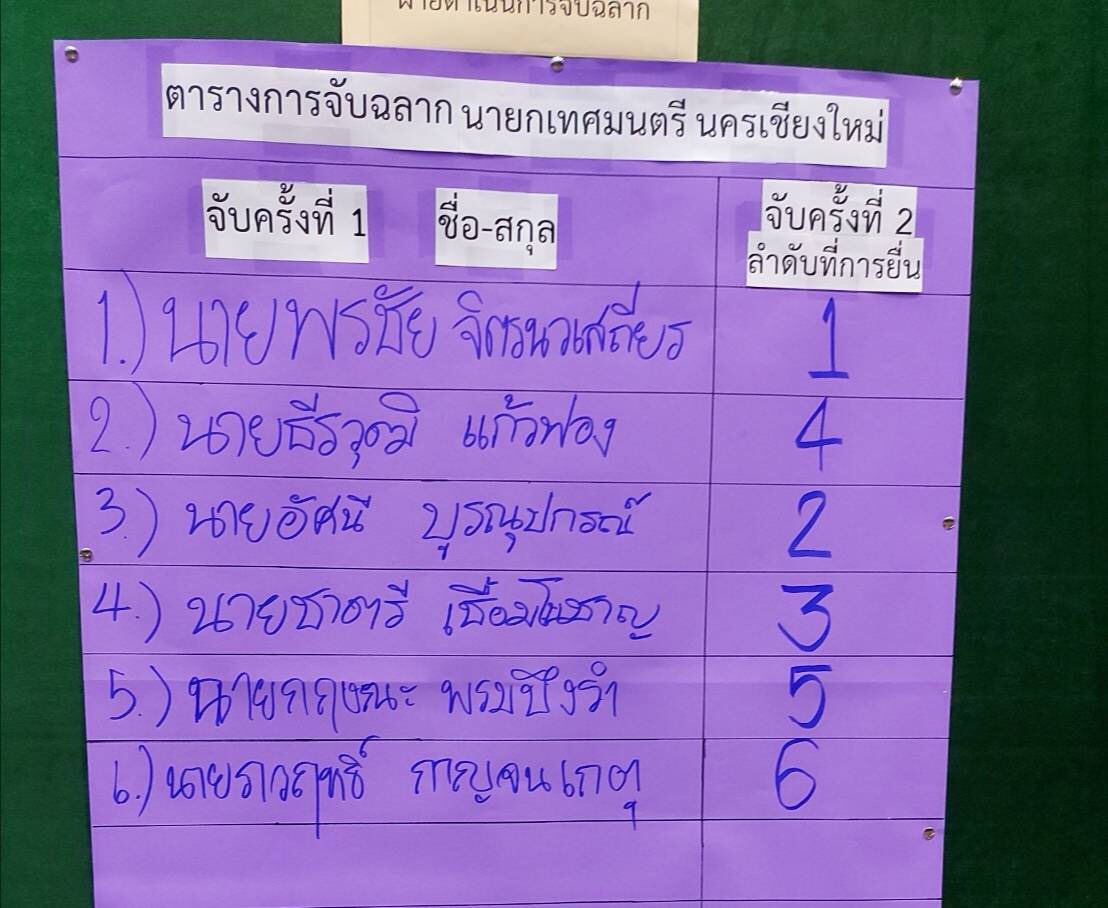 ฝ่ายดำเนินการจับฉลาก
ตารางการจับฉลาก นายกเทศมนตรี นครเชียงใหม่
จับครั้งที่ 1 ชื่อ-สกุล จับครั้งที่ 2
ลำดับที่การยื่น
1.) นายพรชัย จิตรนวเสถียร 1
2.) นายธีรวุฒิ แก้วฟอง 4
3.) นายอัศนี บูรณุปกรณ์ 2
4.) นายชาตรี เชื้อมโนชาญ 3
5.) นายกฤษณะ พรมบึงรำ 5
6.) นายภวฤทธิ์ กาญจนเกตุ 6